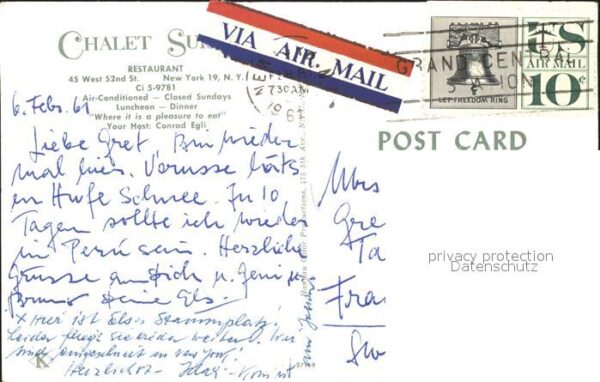 CHALET SU
RESTAURANT
45 West 52nd St. New York 19, N.Y.
Ci 5-9781
Air-Conditioned — Closed Sundays
Luncheon — Dinner
"Where it is a pleasure to eat"
Your Host: Conrad Egli
VIA AIR MAIL
NEW
730 AM
196
GRAND CENTRAL
STATION
LET FREEDOM RING
US
AIR MAIL
10¢
POST CARD
6. Febr. 61
Liebe Gret, Bin wieder
mal hier.
en Hufe Schnee. In 10
Tagen sollte ich wieder
in Peru sein. Herzliche
Grüsse an Dich u.
Bruno Deine Els.
x Hier ist Elses Stammplatz!
Leider fliegt sie wieder weiter. Wir
sind eingeschneit in New York!
Herzlichst
Color Productions, 475 5th Ave.
K
Mrs
Gre
Ta
Fra
Sw
privacy protection
Datenschutz